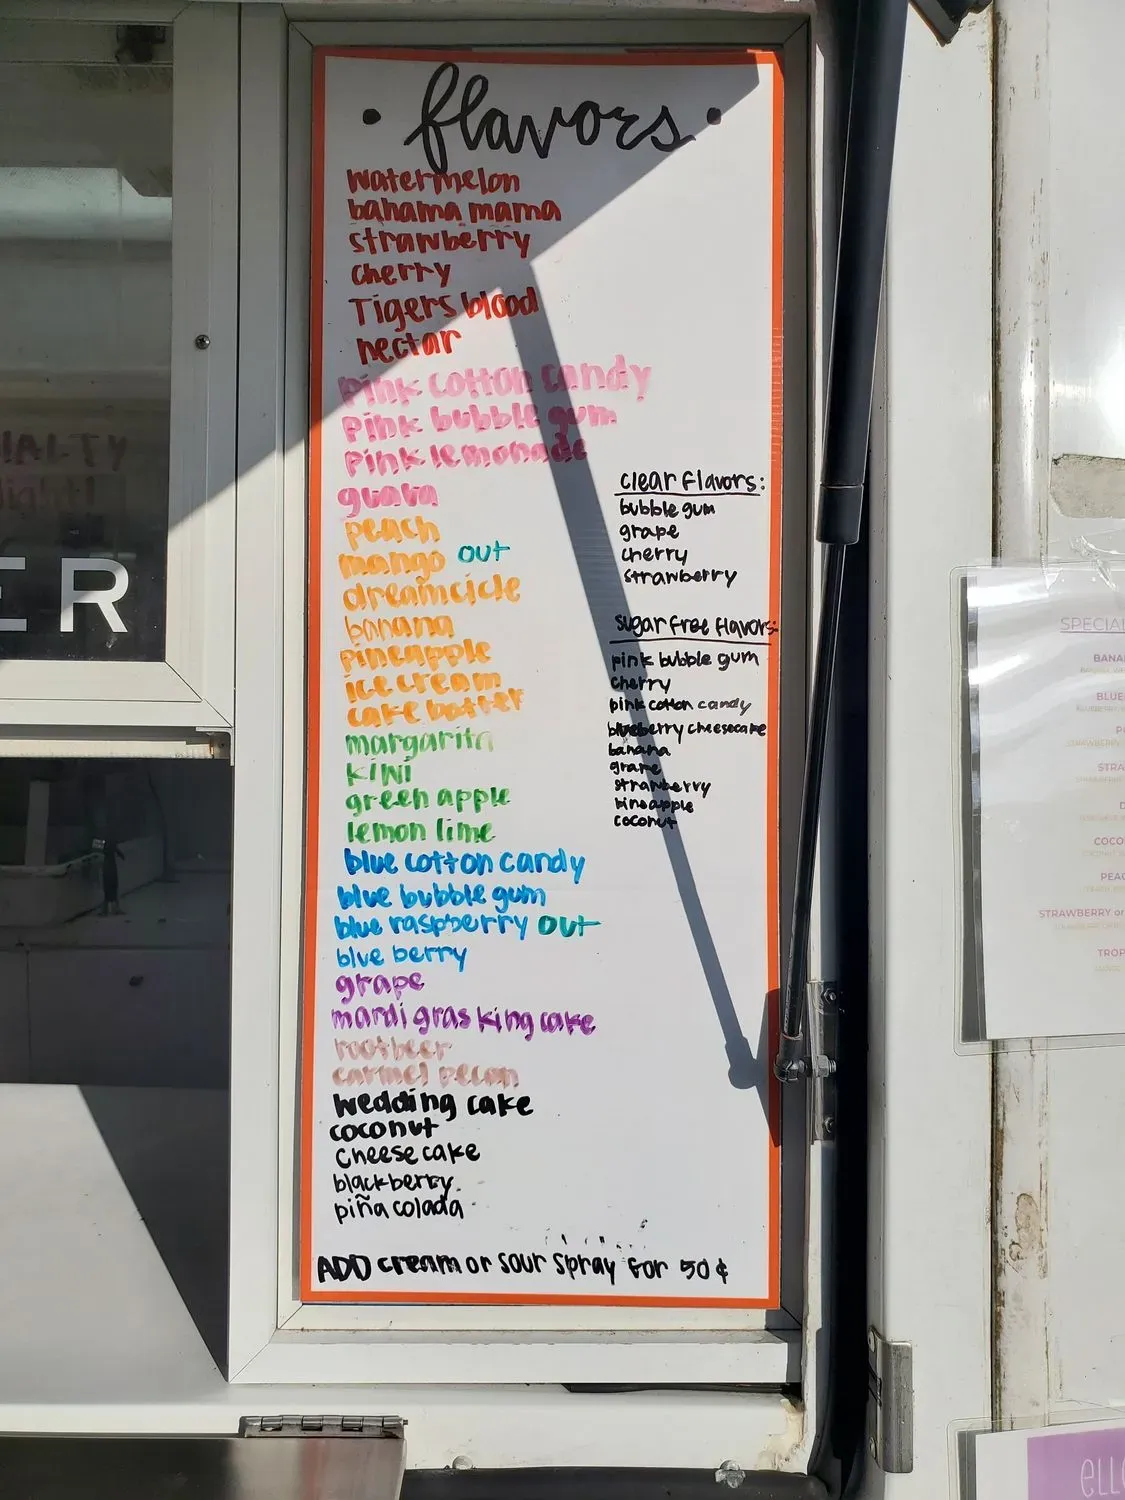 • flavors •
watermelon
bahama mama
strawberry
cherry
Tigers blood
nectar
pink cotton candy
pink bubble gum
pink lemonade
guava
peach
mango out
dreamcicle
banana
pineapple
ice cream
cake batter
margarita
kiwi
green apple
lemon lime
blue cotton candy
blue bubble gum
blue raspberry out
blue berry
grape
mardi gras king cake
rootbeer
carmel pecan
wedding cake
coconut
cheese cake
blackberry
piña colada
ADD cream or sour spray for 50¢
clear flavors:
bubble gum
grape
cherry
strawberry
sugar free flavors:
pink bubble gum
cherry
pink cotton candy
blueberry cheesecake
banana
grape
strawberry
pineapple
coconut
IALTY
light!
ER
SPECIAL
BANA
BLUE
P
STRA
D
COCO
PEAC
STRAWBERRY or
TROP
elle